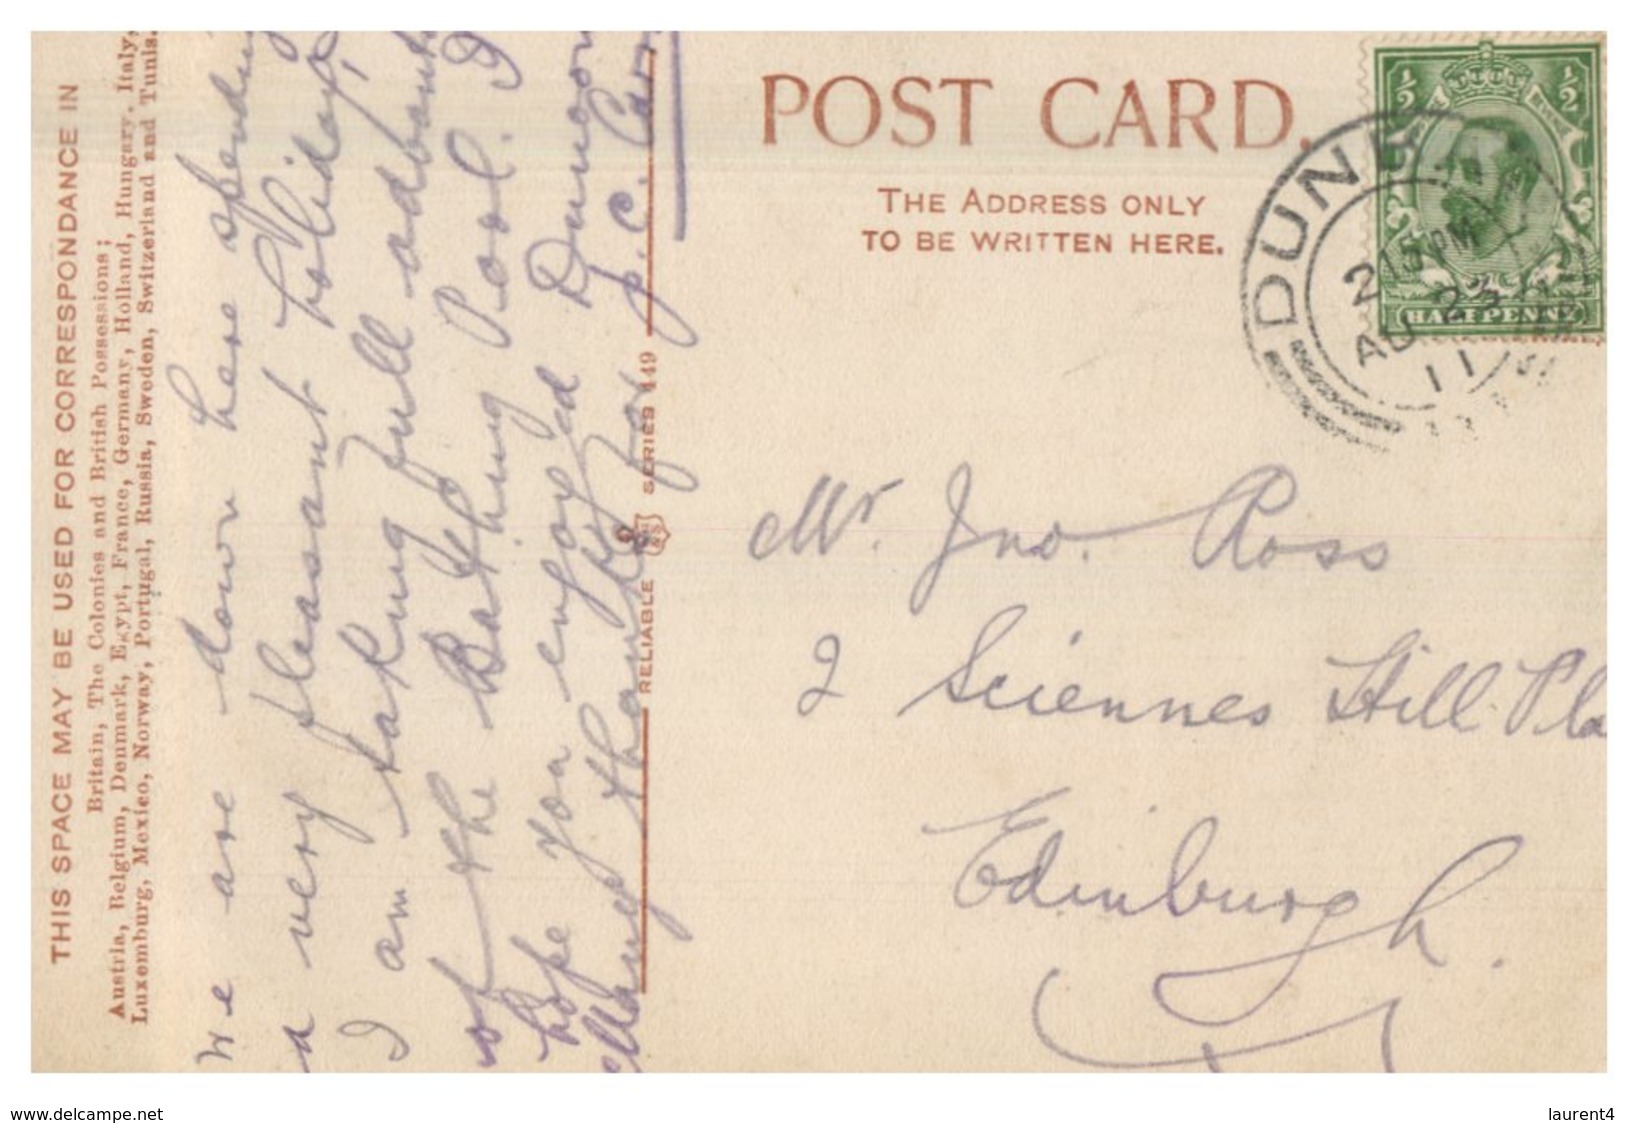 THIS SPACE MAY BE USED FOR CORRESPONDANCE IN
Britain, The Colonies and British Possessions;
Austria, Belgium, Denmark, Egypt, France, Germany, Holland, Hungary, Italy,
Luxemburg, Mexico, Norway, Portugal, Russia, Sweden, Switzerland and Tunis.
We are down here spending
a very pleasant holiday,
I am taking full advant
of the Bathing Pool. I
hope you enjoy'd Dunoon
Many thanks for p.c. Car
RELIABLE SERIES 449
POST CARD.
THE ADDRESS ONLY
TO BE WRITTEN HERE.
½ ½
HALFPENNY
DUNB
2 15 PM
AU 23
11
Mr. Jno. Ross
2 Sciennes Hill Pla
Edinburgh.
www.delcampe.net
laurent4